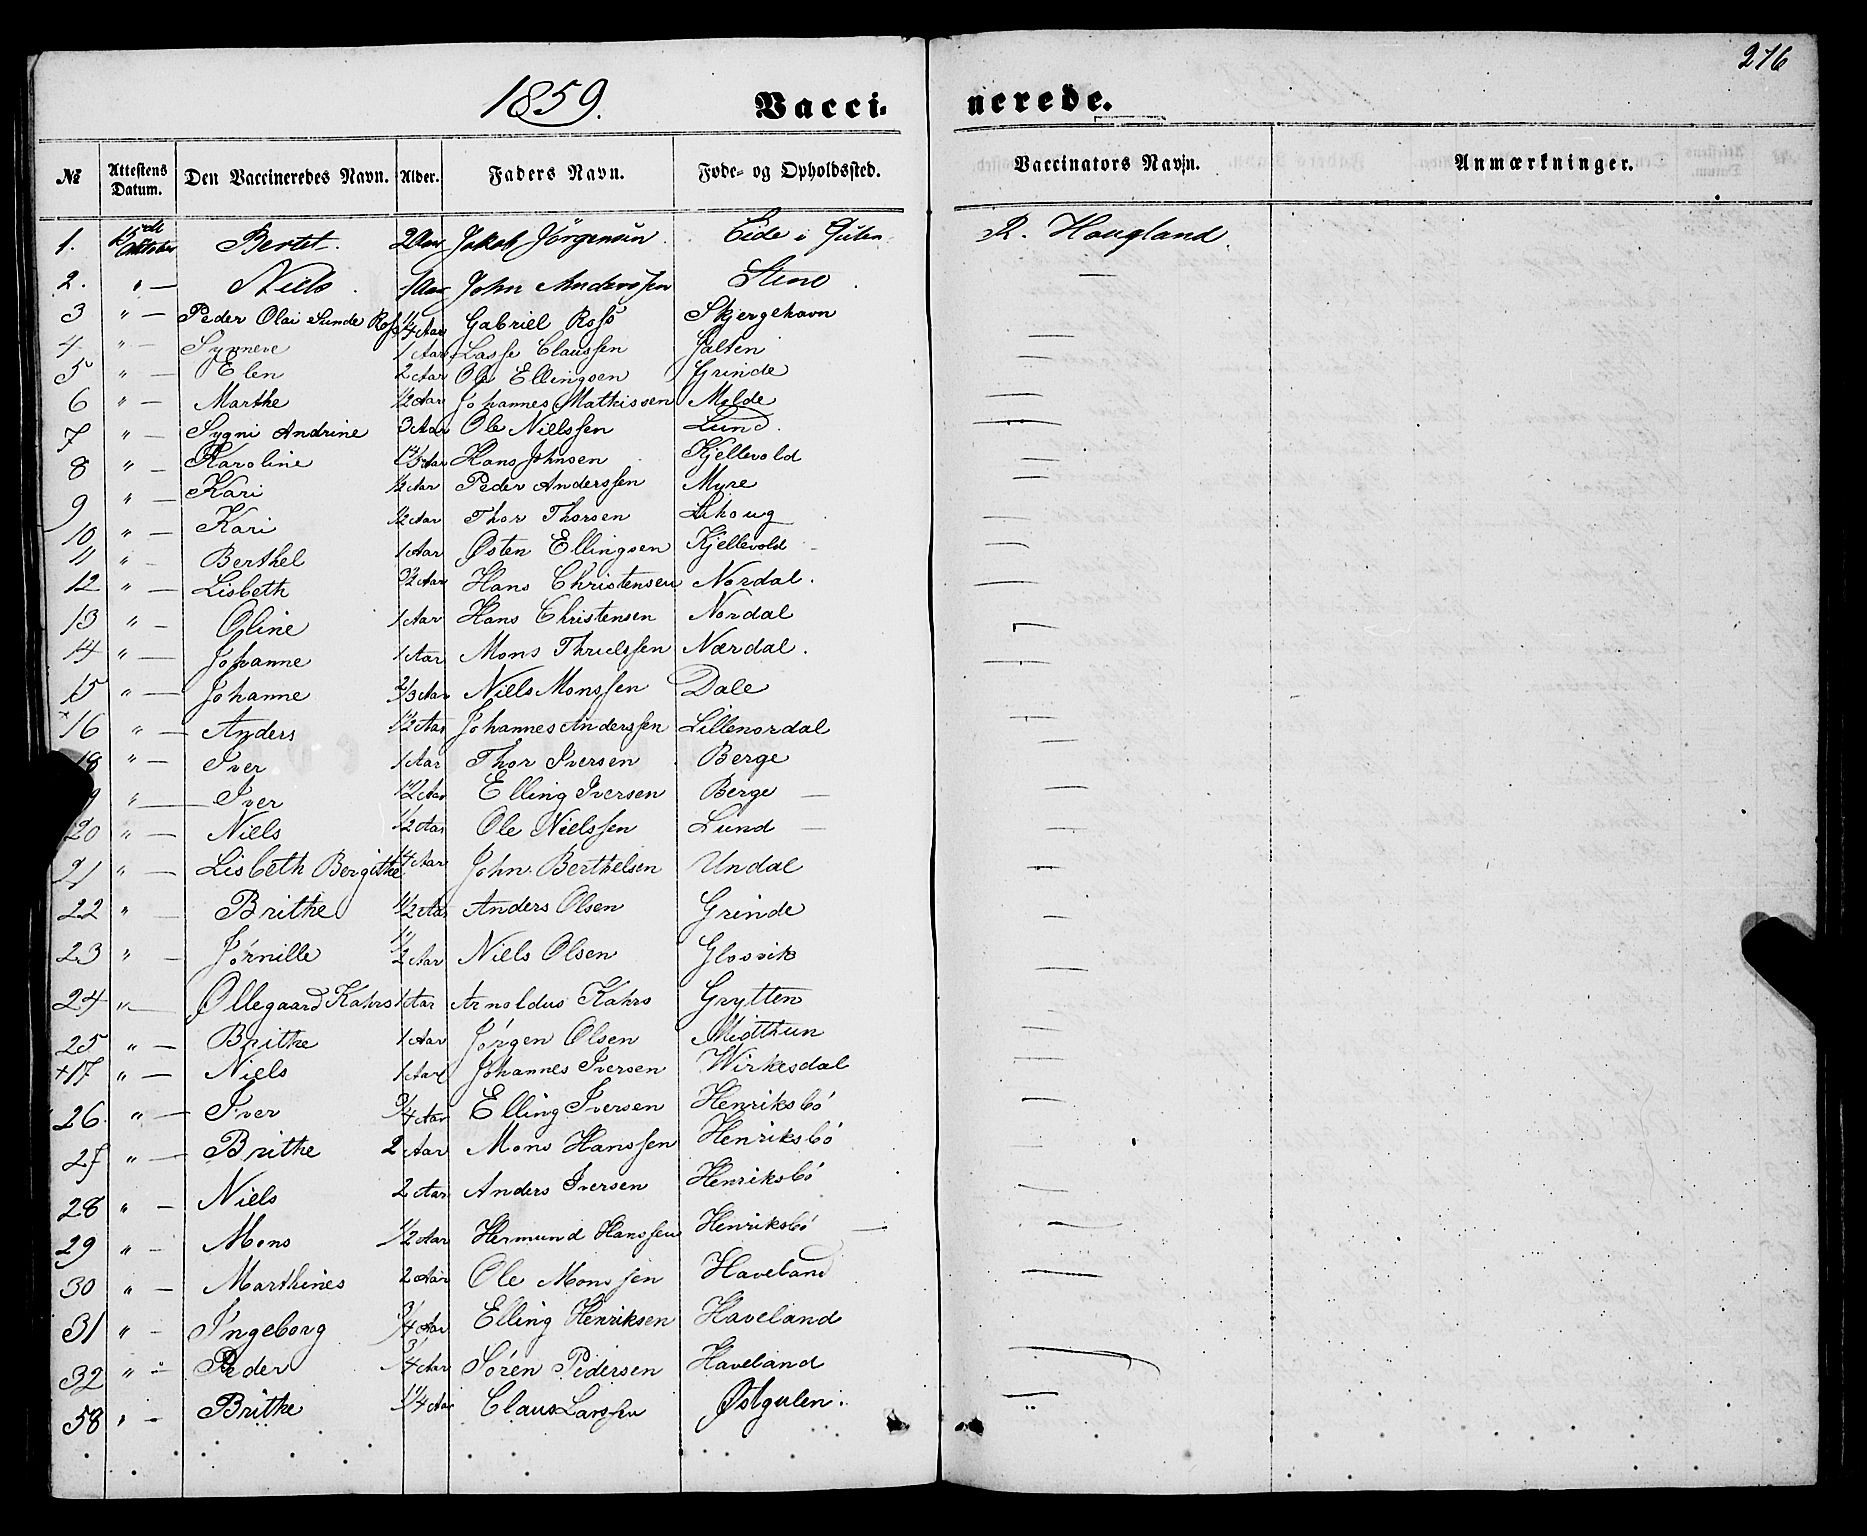 276
1859. Vaccinerede.
№ Attestens Datum. Den Vaccineredes Navn. Alder. Faders Navn. Føde- og Opholdssted. Vaccinators Navn. Anmærkninger.
1. Oktober Bertet. 2 Aar Jakob Jörgensen Eide i R. Hougland.
2. " — Niels 1 Aar John Anderssen Steno —
3 " — Peder Olai Sunde Ross 1/4 Aar Gabriel Ross Skjergehavn
4. " — Synneve 1 Aar Lasse Claussen —
5 " — Elen 2 Aar Ole Ellingsen Grinde —
6 " — Marthe 1/2 Aar Johannes Mathissen Molde —
7 " — Sygni Andrine 3 Aar Ole Nielssen Lund. —
8 " — Karoline Aar Hans Johnsen Kjellevold —
9 " — Kari 1/2 Aar Peder Anderssen Myre —
10 " — Kari 1/2 Aar Thor Thorsen —
11 " — Berthel 1 Aar Østen Ellingsen Kjellevold —
12 " — Lisbeth Aar Hans Christensen Nordal. —
13 " — Oline 1 Aar Hans Christensen Nordal —
14 " — Johanne 1 Aar Mons Nordal. —
15 " — Johanne 2/3 Aar Niels Monssen Dale
16 " — Anders 1 1/2 Aar Johannes Anderssen Lillenordal —
18 " — Iver 1 Aar Thor Iversen Berge —
" — Iver 1 1/2 Aar Elling Iversen Berge — —
20 " — Niels 1/2 Aar Ole Nielssen Lund — —
21 " — Lisbeth Bergithe 1/4 Aar John Berthelsen Undal —
22 " — Brithe 1 1/2 Aar Anders Olsen Grinde —
23 " — Jørnille 1/2 Aar Niels Olsen Glosvik —
24 " — Øllegaard Kahrs 1 Aar Arnoldus Kahrs Grytten
25 " — Brithe 1 Aar Jörgen Olsen Midthun —
+17 " — Niels 1 Aar Johannes Iversen Wirkesdal —
26. " — Iver 3/4 Aar Elling Iversen Henriksbó —
27 " — Brithe 2 Aar Mons Hanssen Henriksbó —
28 " — Niels 2 Aar Anders Iversen Henriksbó —
29 " — Mons 1/2 Aar Hermund Hanssen Henriksbó — —
30 " — Marthines 2 Aar Ole Monssen Haveland —
31 " — Ingeborg 3/4 Aar Elling Henriksen Haveland
32 " — Peder 3/4 Aar Sören Pedersen Haveland —
58 " — Brithe 1 1/4 Aar Claus Larssen Østgulen. —